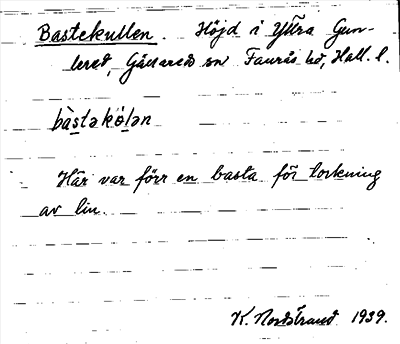 Bastekullen. Höjd i Yttra Gun-
lered, Gällareds sn Faurås hd, Hall. l.
bàstəkölən
Här var förr en basta för torkning
av lin.
K. Nordstrand 1939.